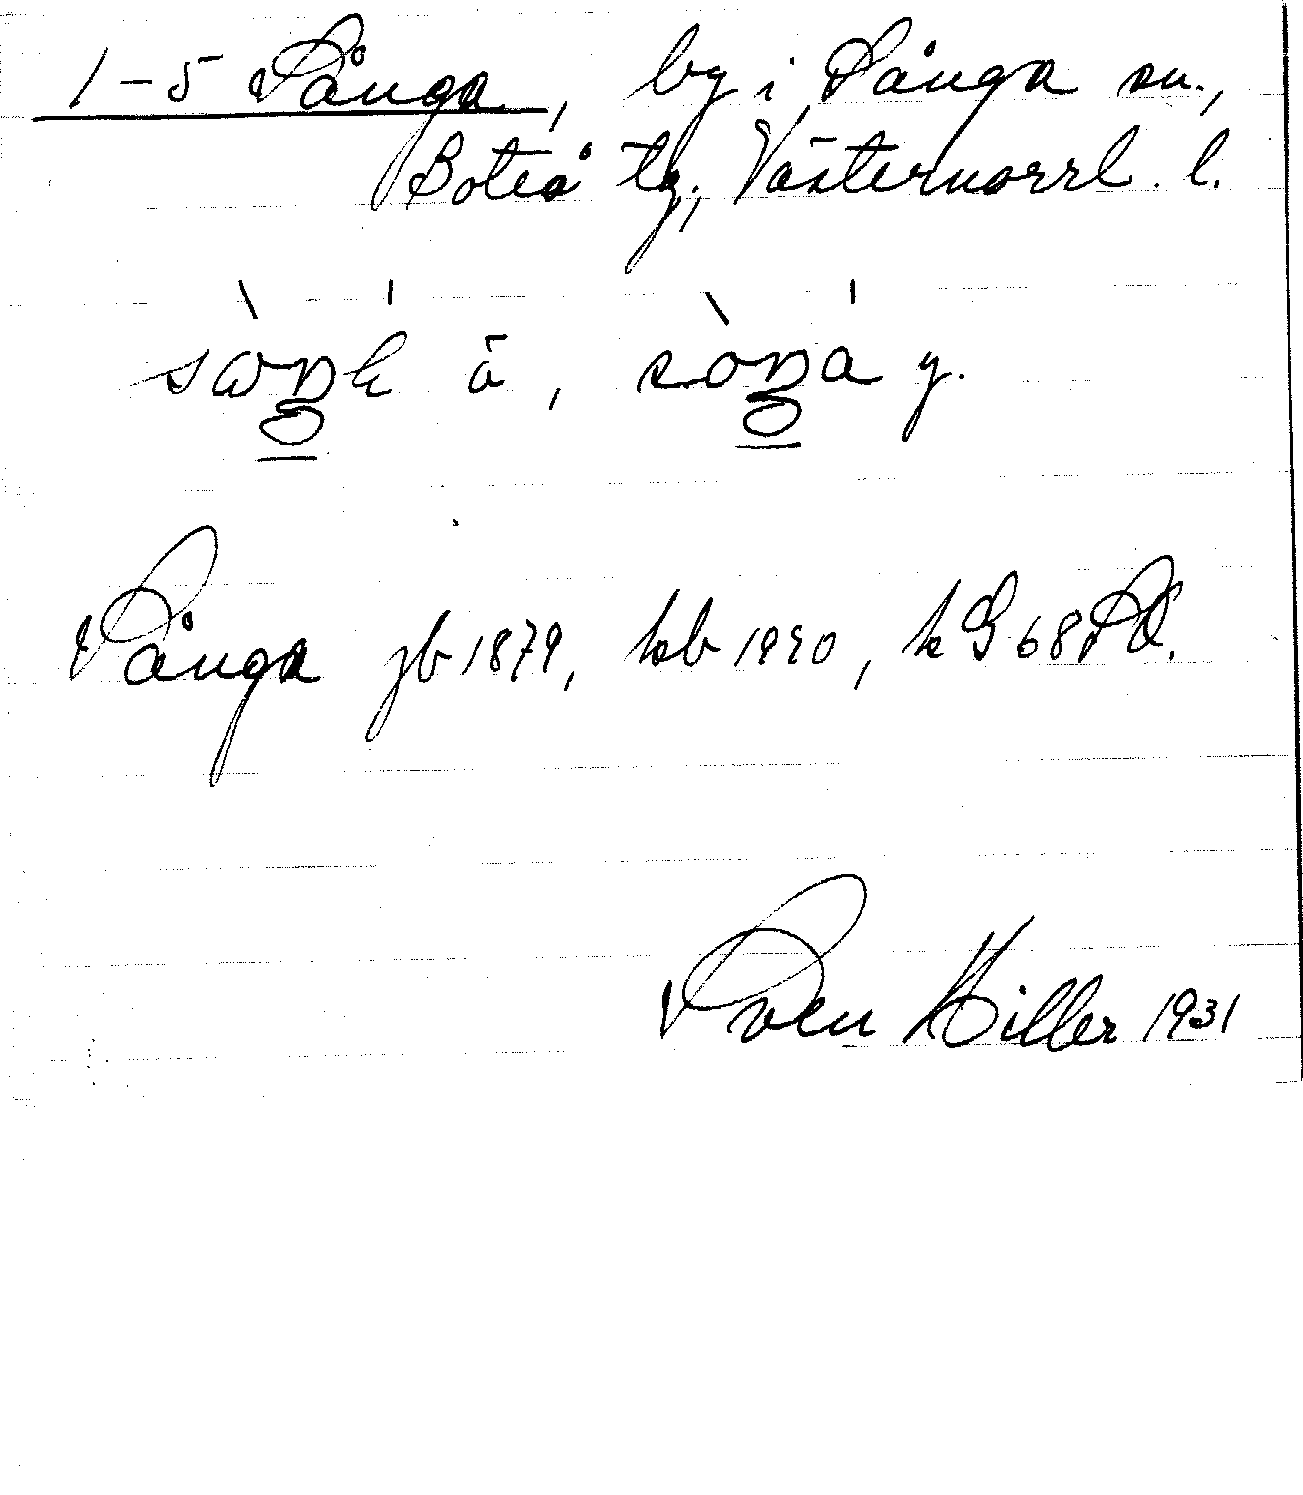 1-5 Sånga, by i Sånga sn.,
Boteå tg, Västernorrl. l.
ä, y.
Sånga jb 1879, hsb 1920, k G 68 SO.
Sven Hiller 1931